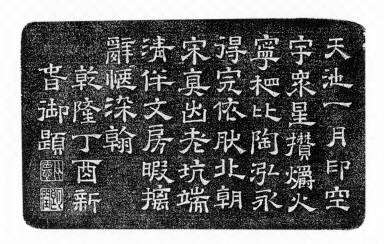 天池一月印空
宇眾星攢爝火
寧比陶泓永
得完依肰北朝
宋真出老坑端
清伴文房暇摛
辭愜深翰
乾隆丁酉新
春御題